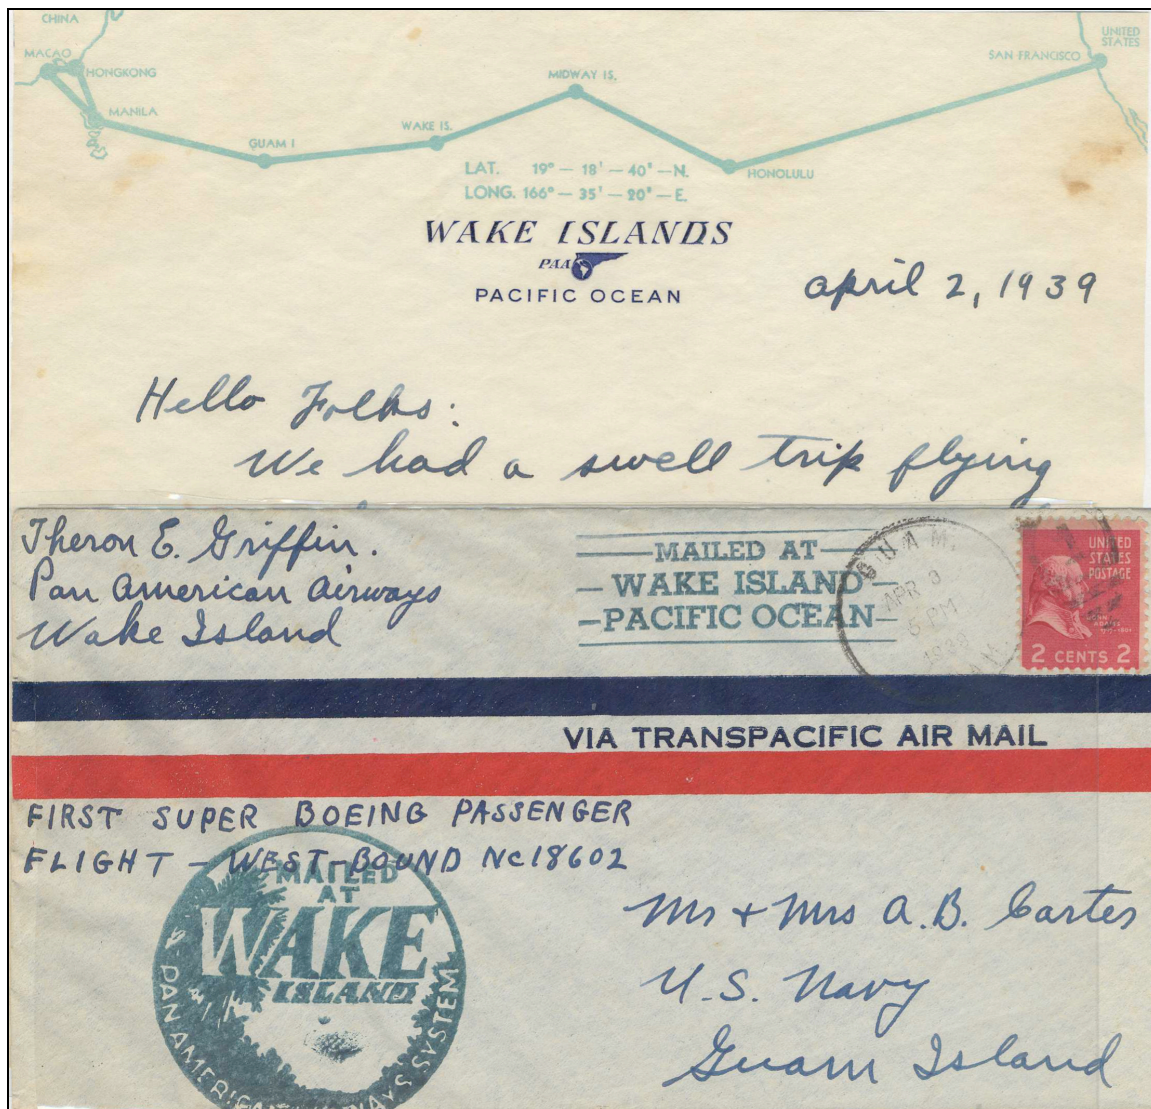 CHINA
UNITED
STATES
MACAO
HONGKONG
SAN FRANCISCO
MIDWAY IS.
MANILA
WAKE IS.
GUAM I
HONOLULU
LAT. 19° — 18' — 40" — N.
LONG. 166° — 35' — 20" — E.
WAKE ISLANDS
PAA
PACIFIC OCEAN
april 2, 1939
Hello Folks:
We had a swell trip flying
Theron E. Griffin.
Pan American Airways
Wake Island
MAILED AT
WAKE ISLAND
PACIFIC OCEAN
GUAM.
APR 3
5 PM
UNITED
STATES
POSTAGE
2 CENTS 2
VIA TRANSPACIFIC AIR MAIL
FIRST SUPER BOEING PASSENGER
FLIGHT — WEST-BOUND NC18602
MAILED
AT
WAKE
ISLAND
PAN AMERICAN AIRWAYS SYSTEM
Mr + Mrs A. B. Carter
U.S. Navy
Guam Island